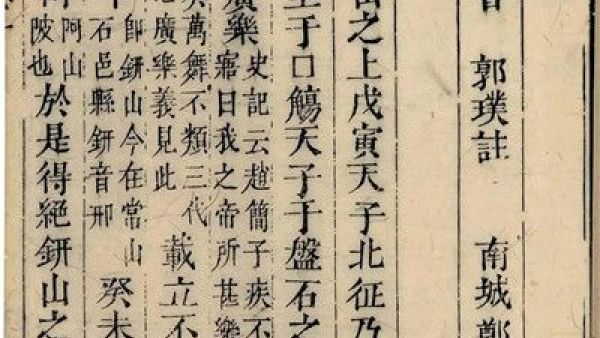 郭璞註 南城鄭
之上戊寅天子北征乃
至于囗觴天子于盤石之
廣樂 史記云趙簡子疾不
寤曰我之帝所甚樂
萬舞不類三代
廣樂義見此 載立不
即鈃山今在常山
石邑縣鈃音邢 癸未
阿山
陂也 於是得絕鈃山之